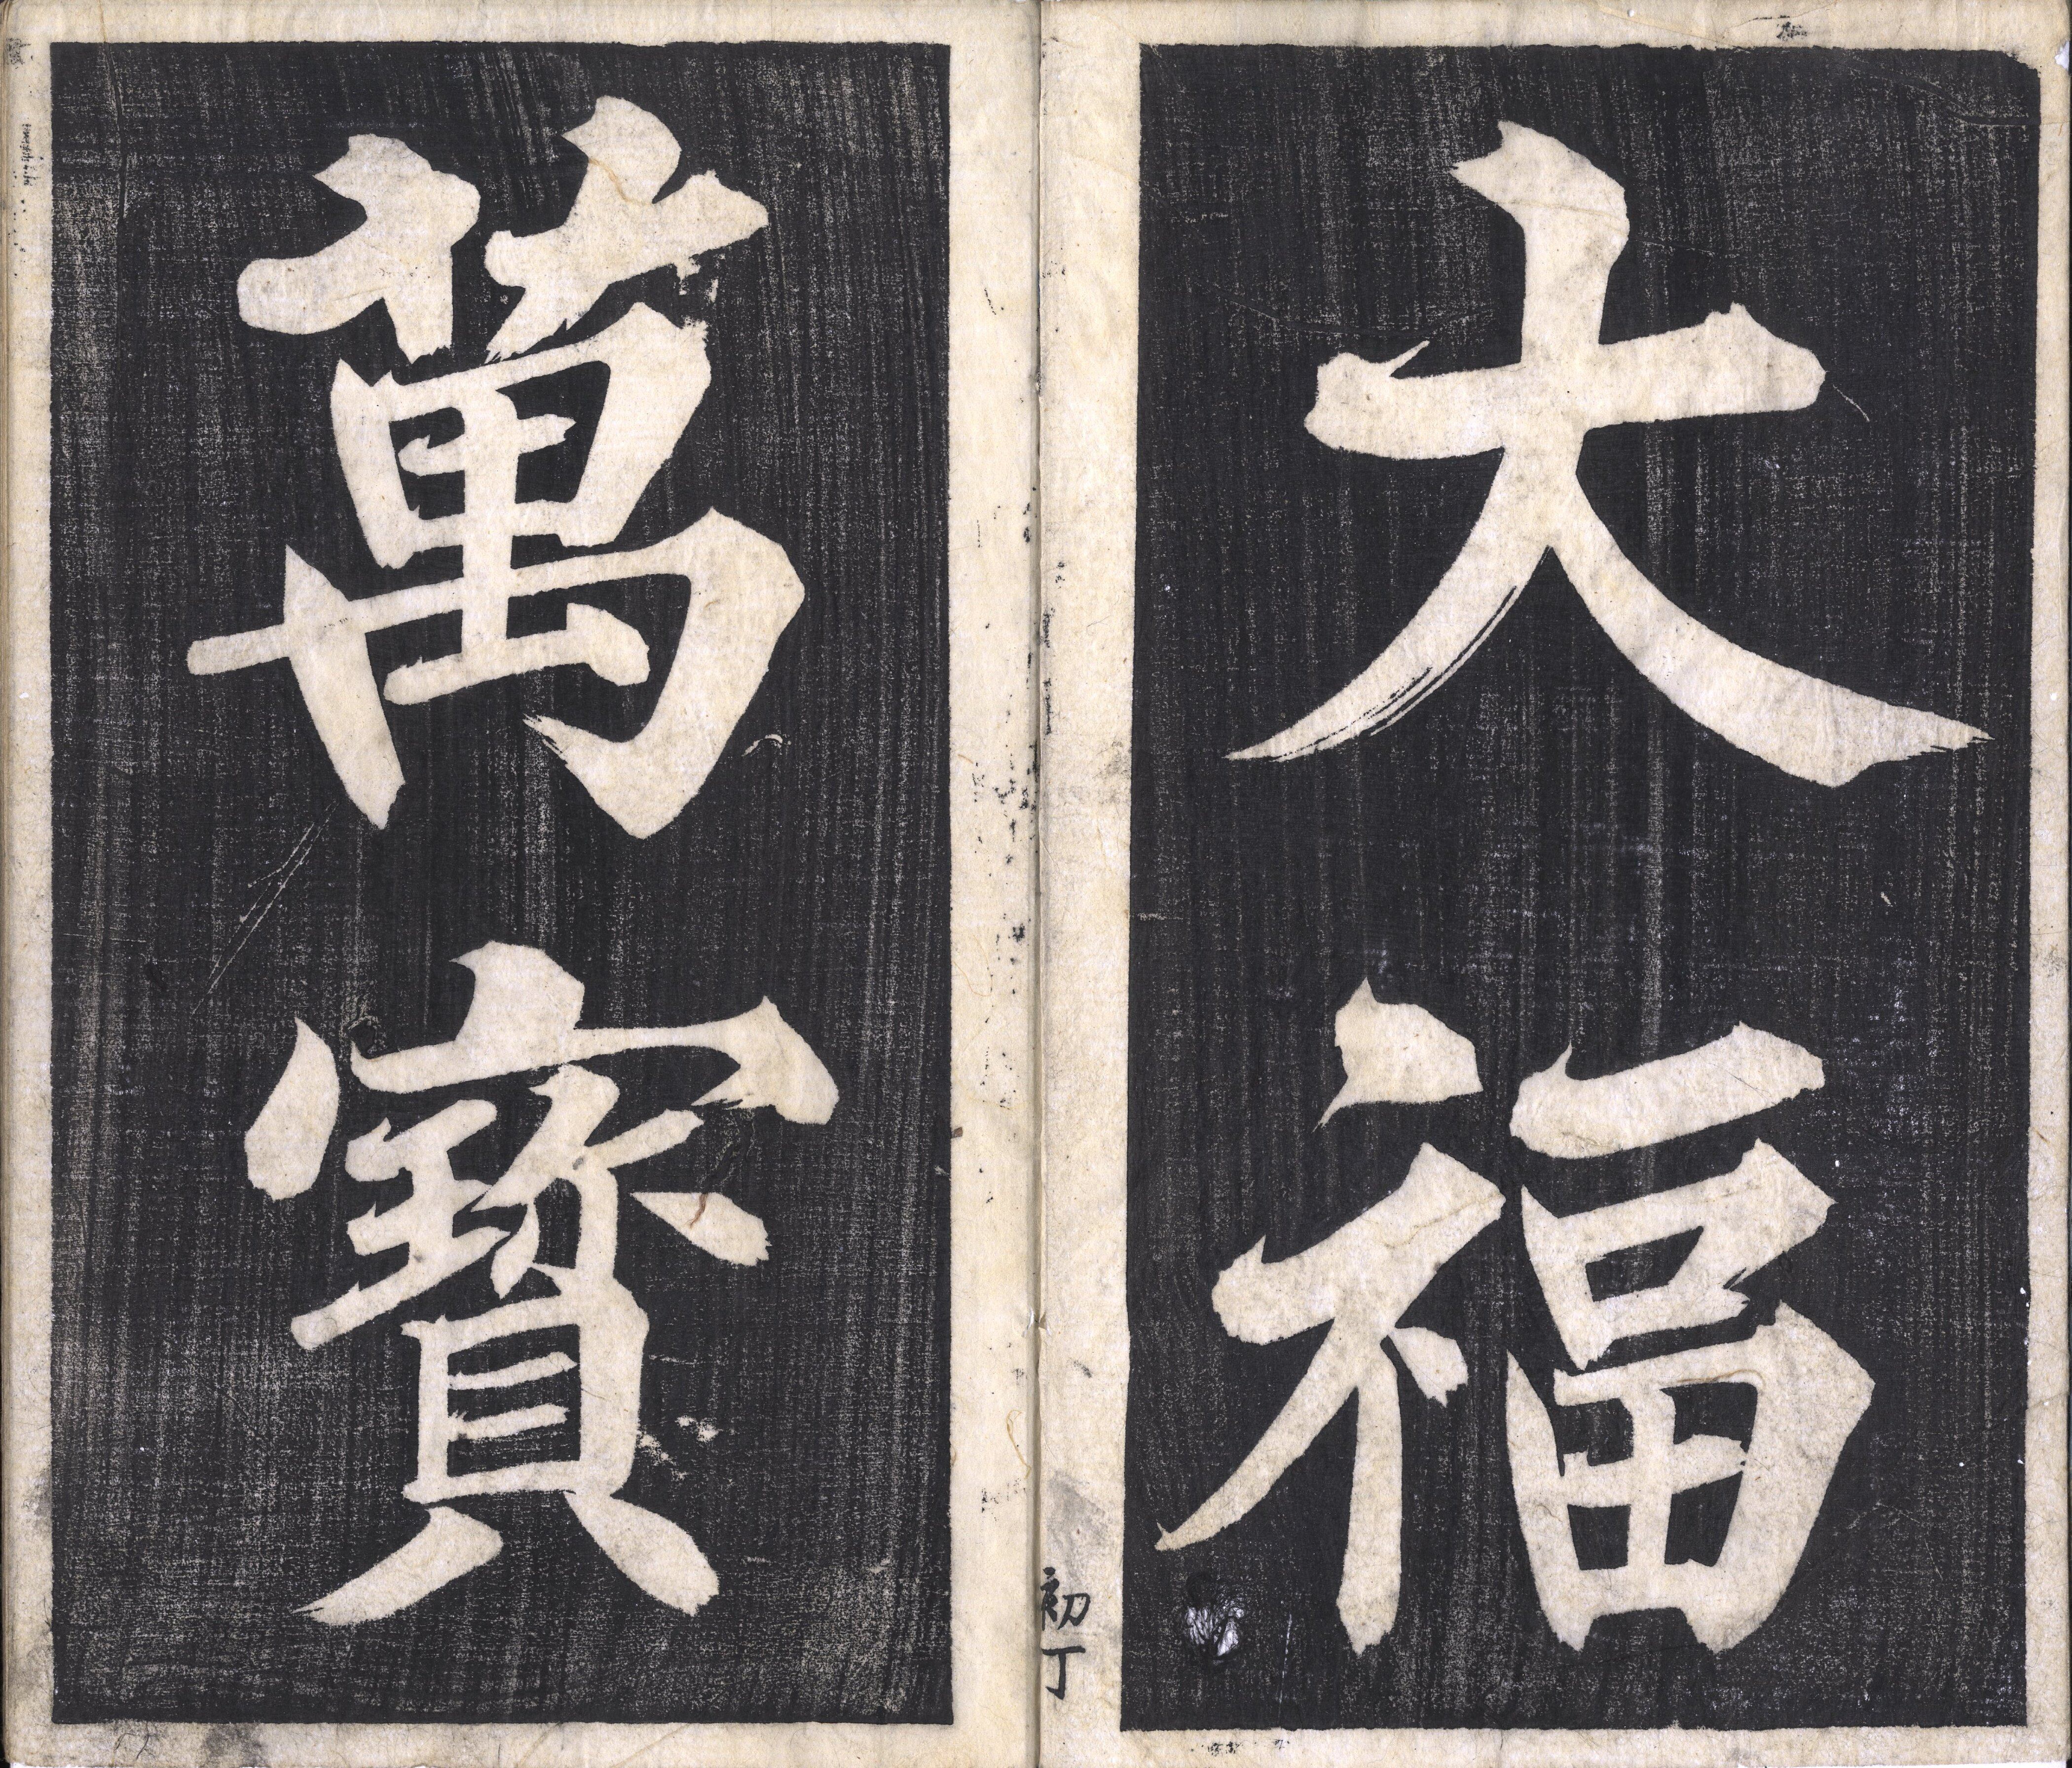 大福
萬寳
初丁